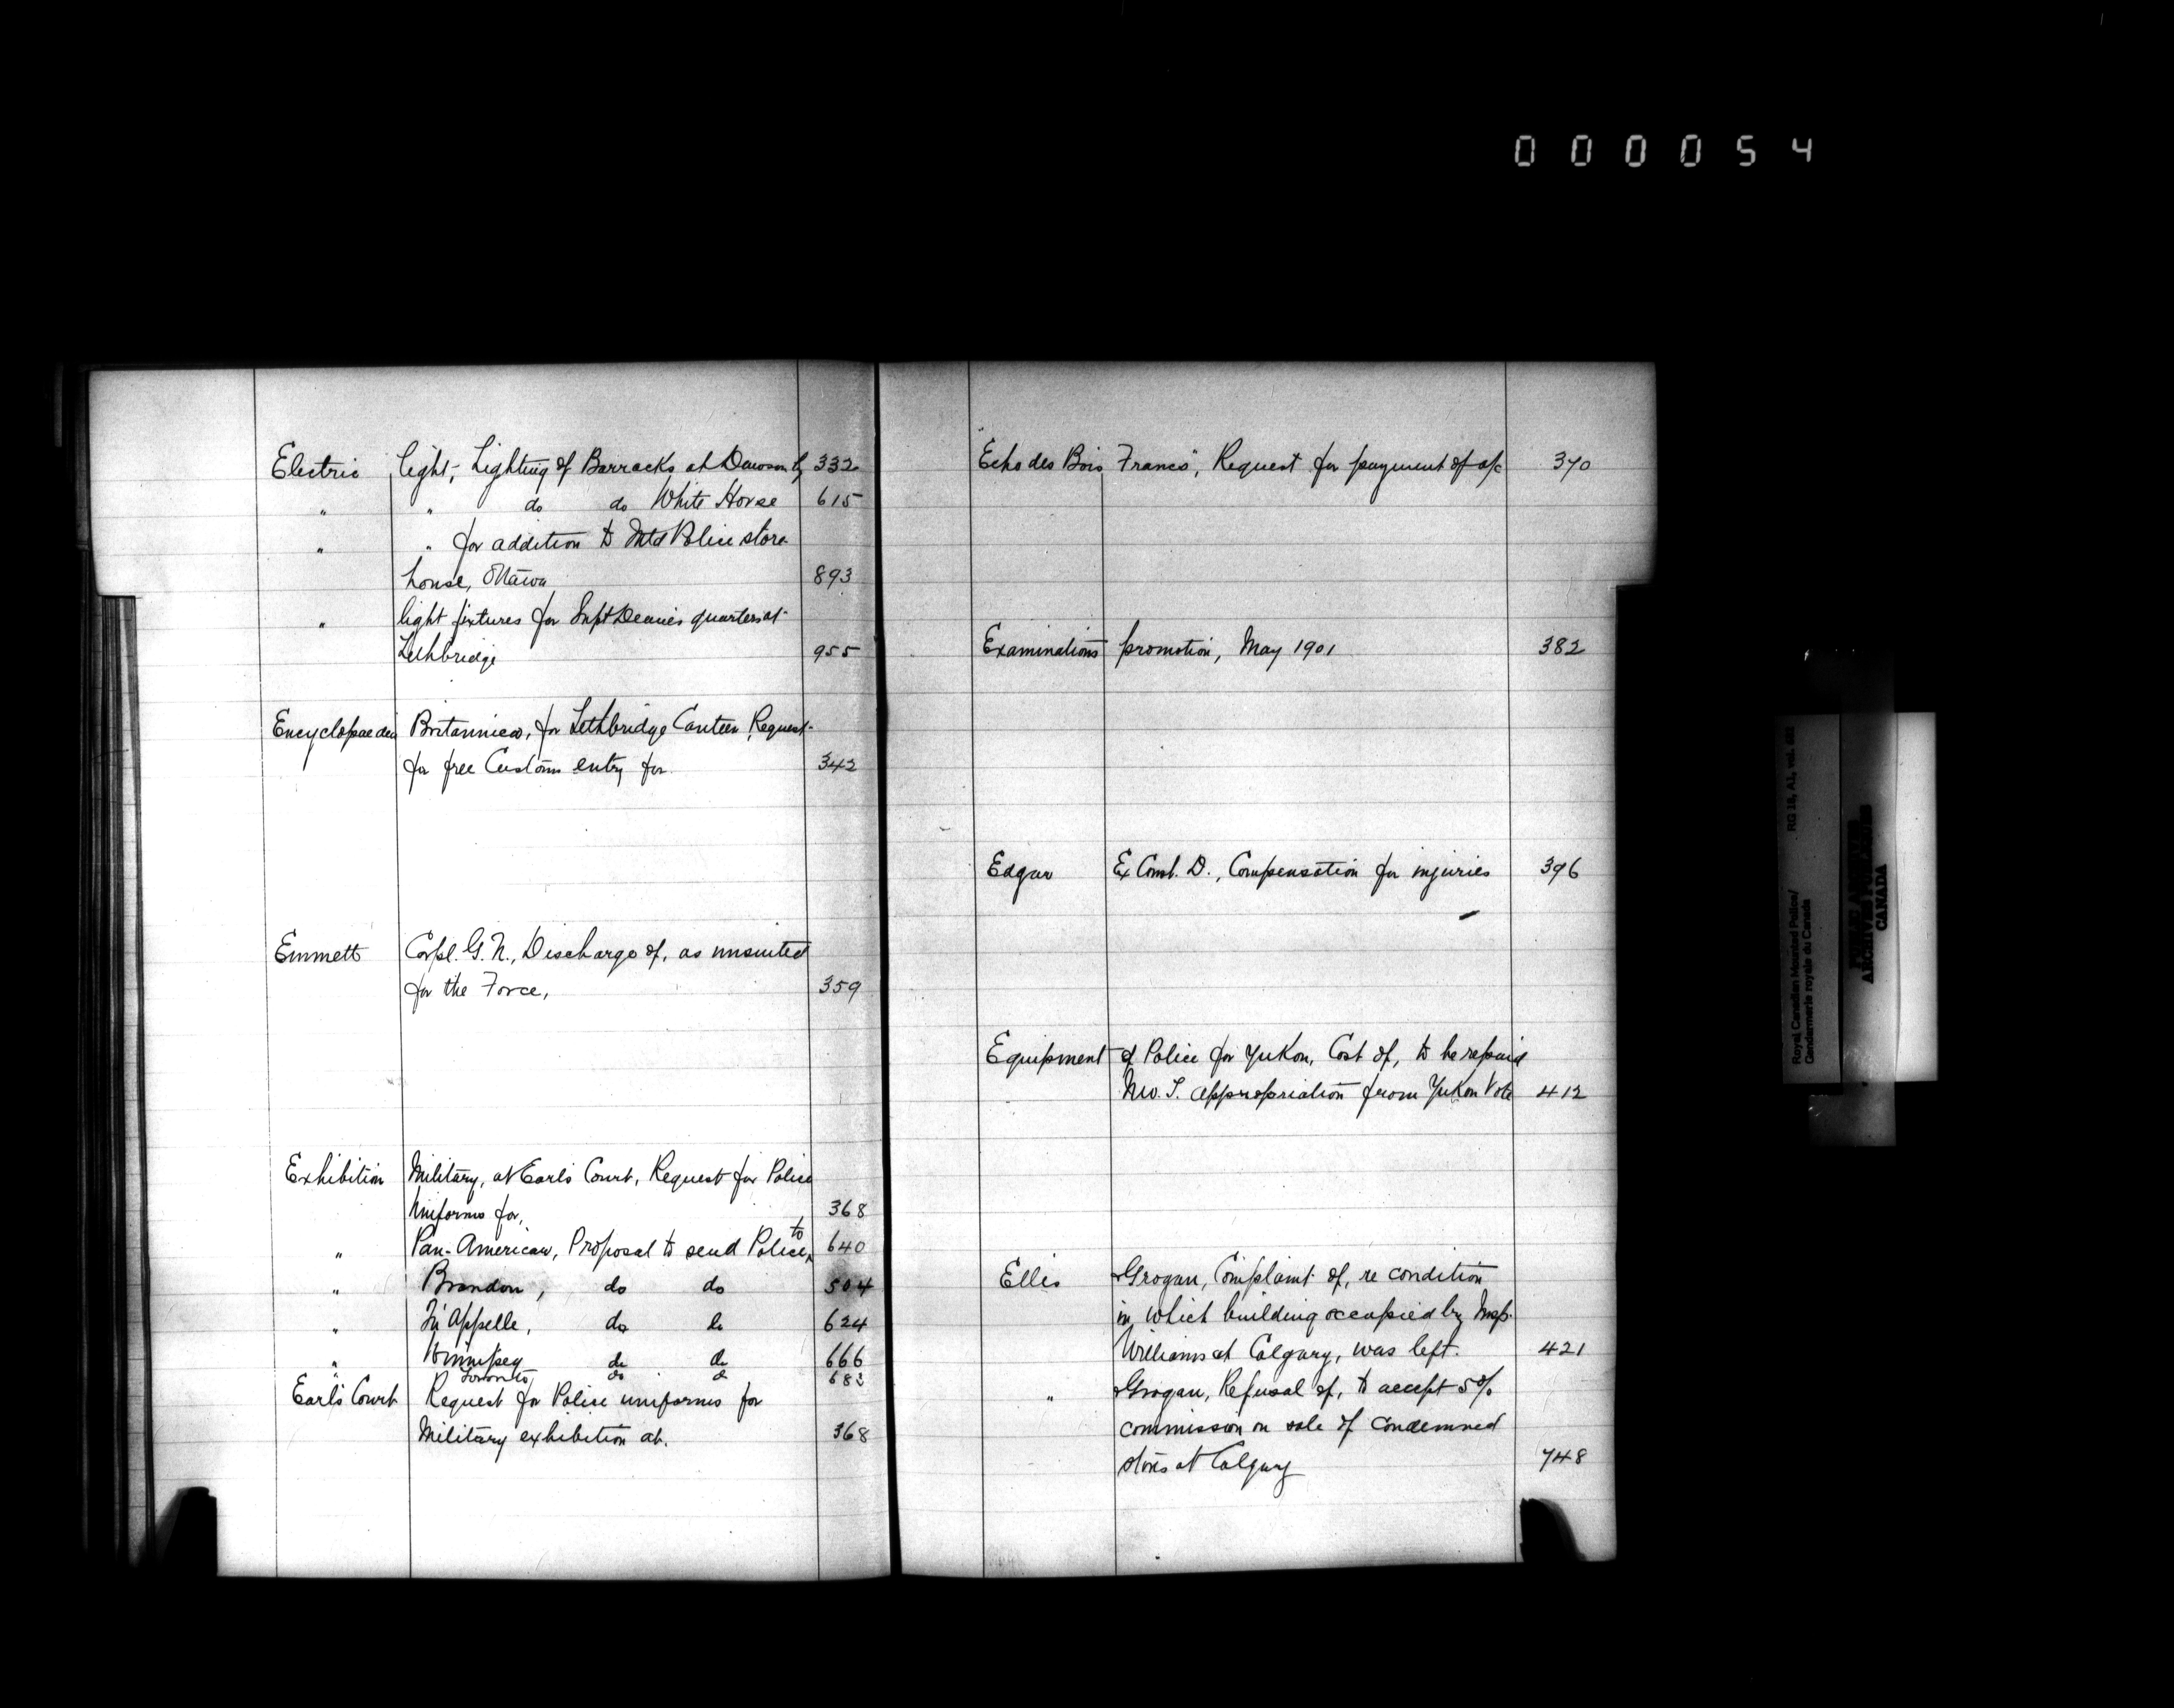 000054
Electric light, Lighting of Barracks at Dawson by 332
" " do do White Horse 615
" " for addition to Mtd Police store
house, Ottawa 893
" light fixtures for Supt Deane's quarters at
Lethbridge 955
Encyclopaedia Britannica, for Lethbridge Canteen, Request
for free Customs entry for 342
Emmett Corpl. G. N., Discharge of, as unsuited
for the Force, 359
Exhibition Military, at Earl's Court, Request for Police
Uniforms for, 368
" Pan-American, Proposal to send Police to 640
" Brandon, do do 504
" Qu'Appelle, do do 624
" Winnipeg do do 666
" Toronto, do do 682
Earl's Court Request for Police uniforms for
Military exhibition at. 368
"Echo des Bois Francs", Request for payment of a/c 370
Examinations promotion, May 1901 382
Edgar Ex Const. D., Compensation for injuries 396
Equipment of Police for Yukon, Cost of, to be repaid
N.W.T. appropriation from Yukon Vote 412
Ellis & Grogan, Complaint of, re condition
in which building occupied by Insp.
Williams at Calgary, was left. 421
" & Grogan, Refusal of, to accept 5%
commission on sale of condemned
stores at Calgary 748
Royal Canadian Mounted Police/
Gendarmerie royale du Canada
RG 18, A1, vol.
ARCHIVES
CANADA